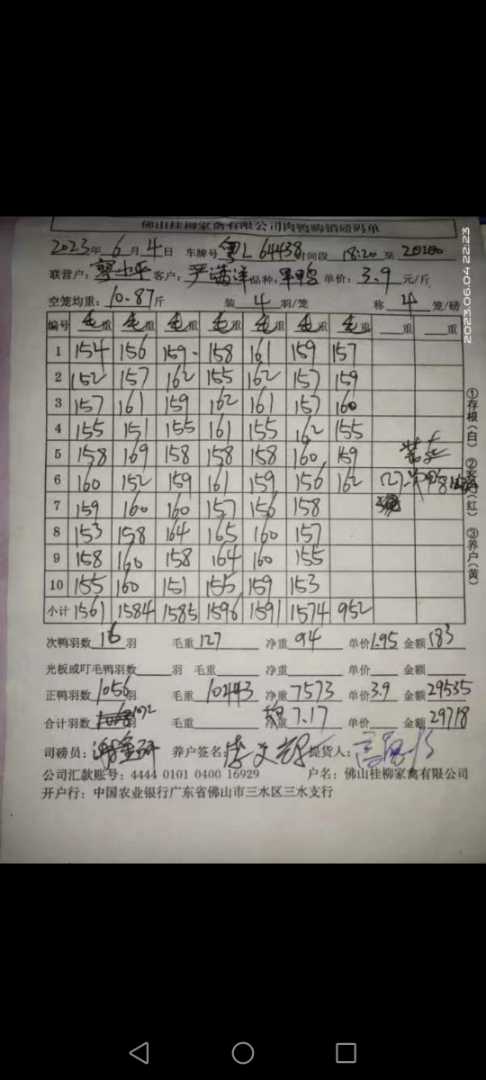 佛山桂柳家禽有限公司肉鸭购销磅码单
2023年6月4日 车牌号 粤L 64438 时间段 18:20 至
联营户: 客户: 品种: 单价: 3.9 元/斤
空笼均重: 10.87 斤 装 4 羽/笼 称 4 笼/磅
编号 毛重 毛重 毛重 毛重 毛重 毛重 毛重 重 重
1 154 156 159 158 161 159 157
2 152 157 162 155 162 157 159
3 157 161 159 162 161 157 160
4 155 151 155 161 155 162 155
5 158 169 158 158 158 160 159
6 160 152 159 161 159 156 162
7 159 160 160 157 156 158
8 153 158 164 165 160 157
9 158 160 158 164 160 155
10 155 160 151 155 159 153
小计 1561 1584 1585 1596 1591 1574 952
次鸭羽数 16 羽 毛重 127 净重 94 单价 1.95 金额 183
光板或叮毛鸭羽数 羽 毛重 净重 单价 金额
正鸭羽数 1056 羽 毛重 10443 净重 7573 单价 3.9 金额 29535
合计羽数 1072 羽 毛重 7.17 单价 金额 29718
司磅员: 养户签名: 提货人:
公司汇款账号: 4444 0101 0400 16929 户名: 佛山桂柳家禽有限公司
开户行: 中国农业银行广东省佛山市三水区三水支行
①存根(白) ② (红) ③养户(黄)
2023.06.04 22:23